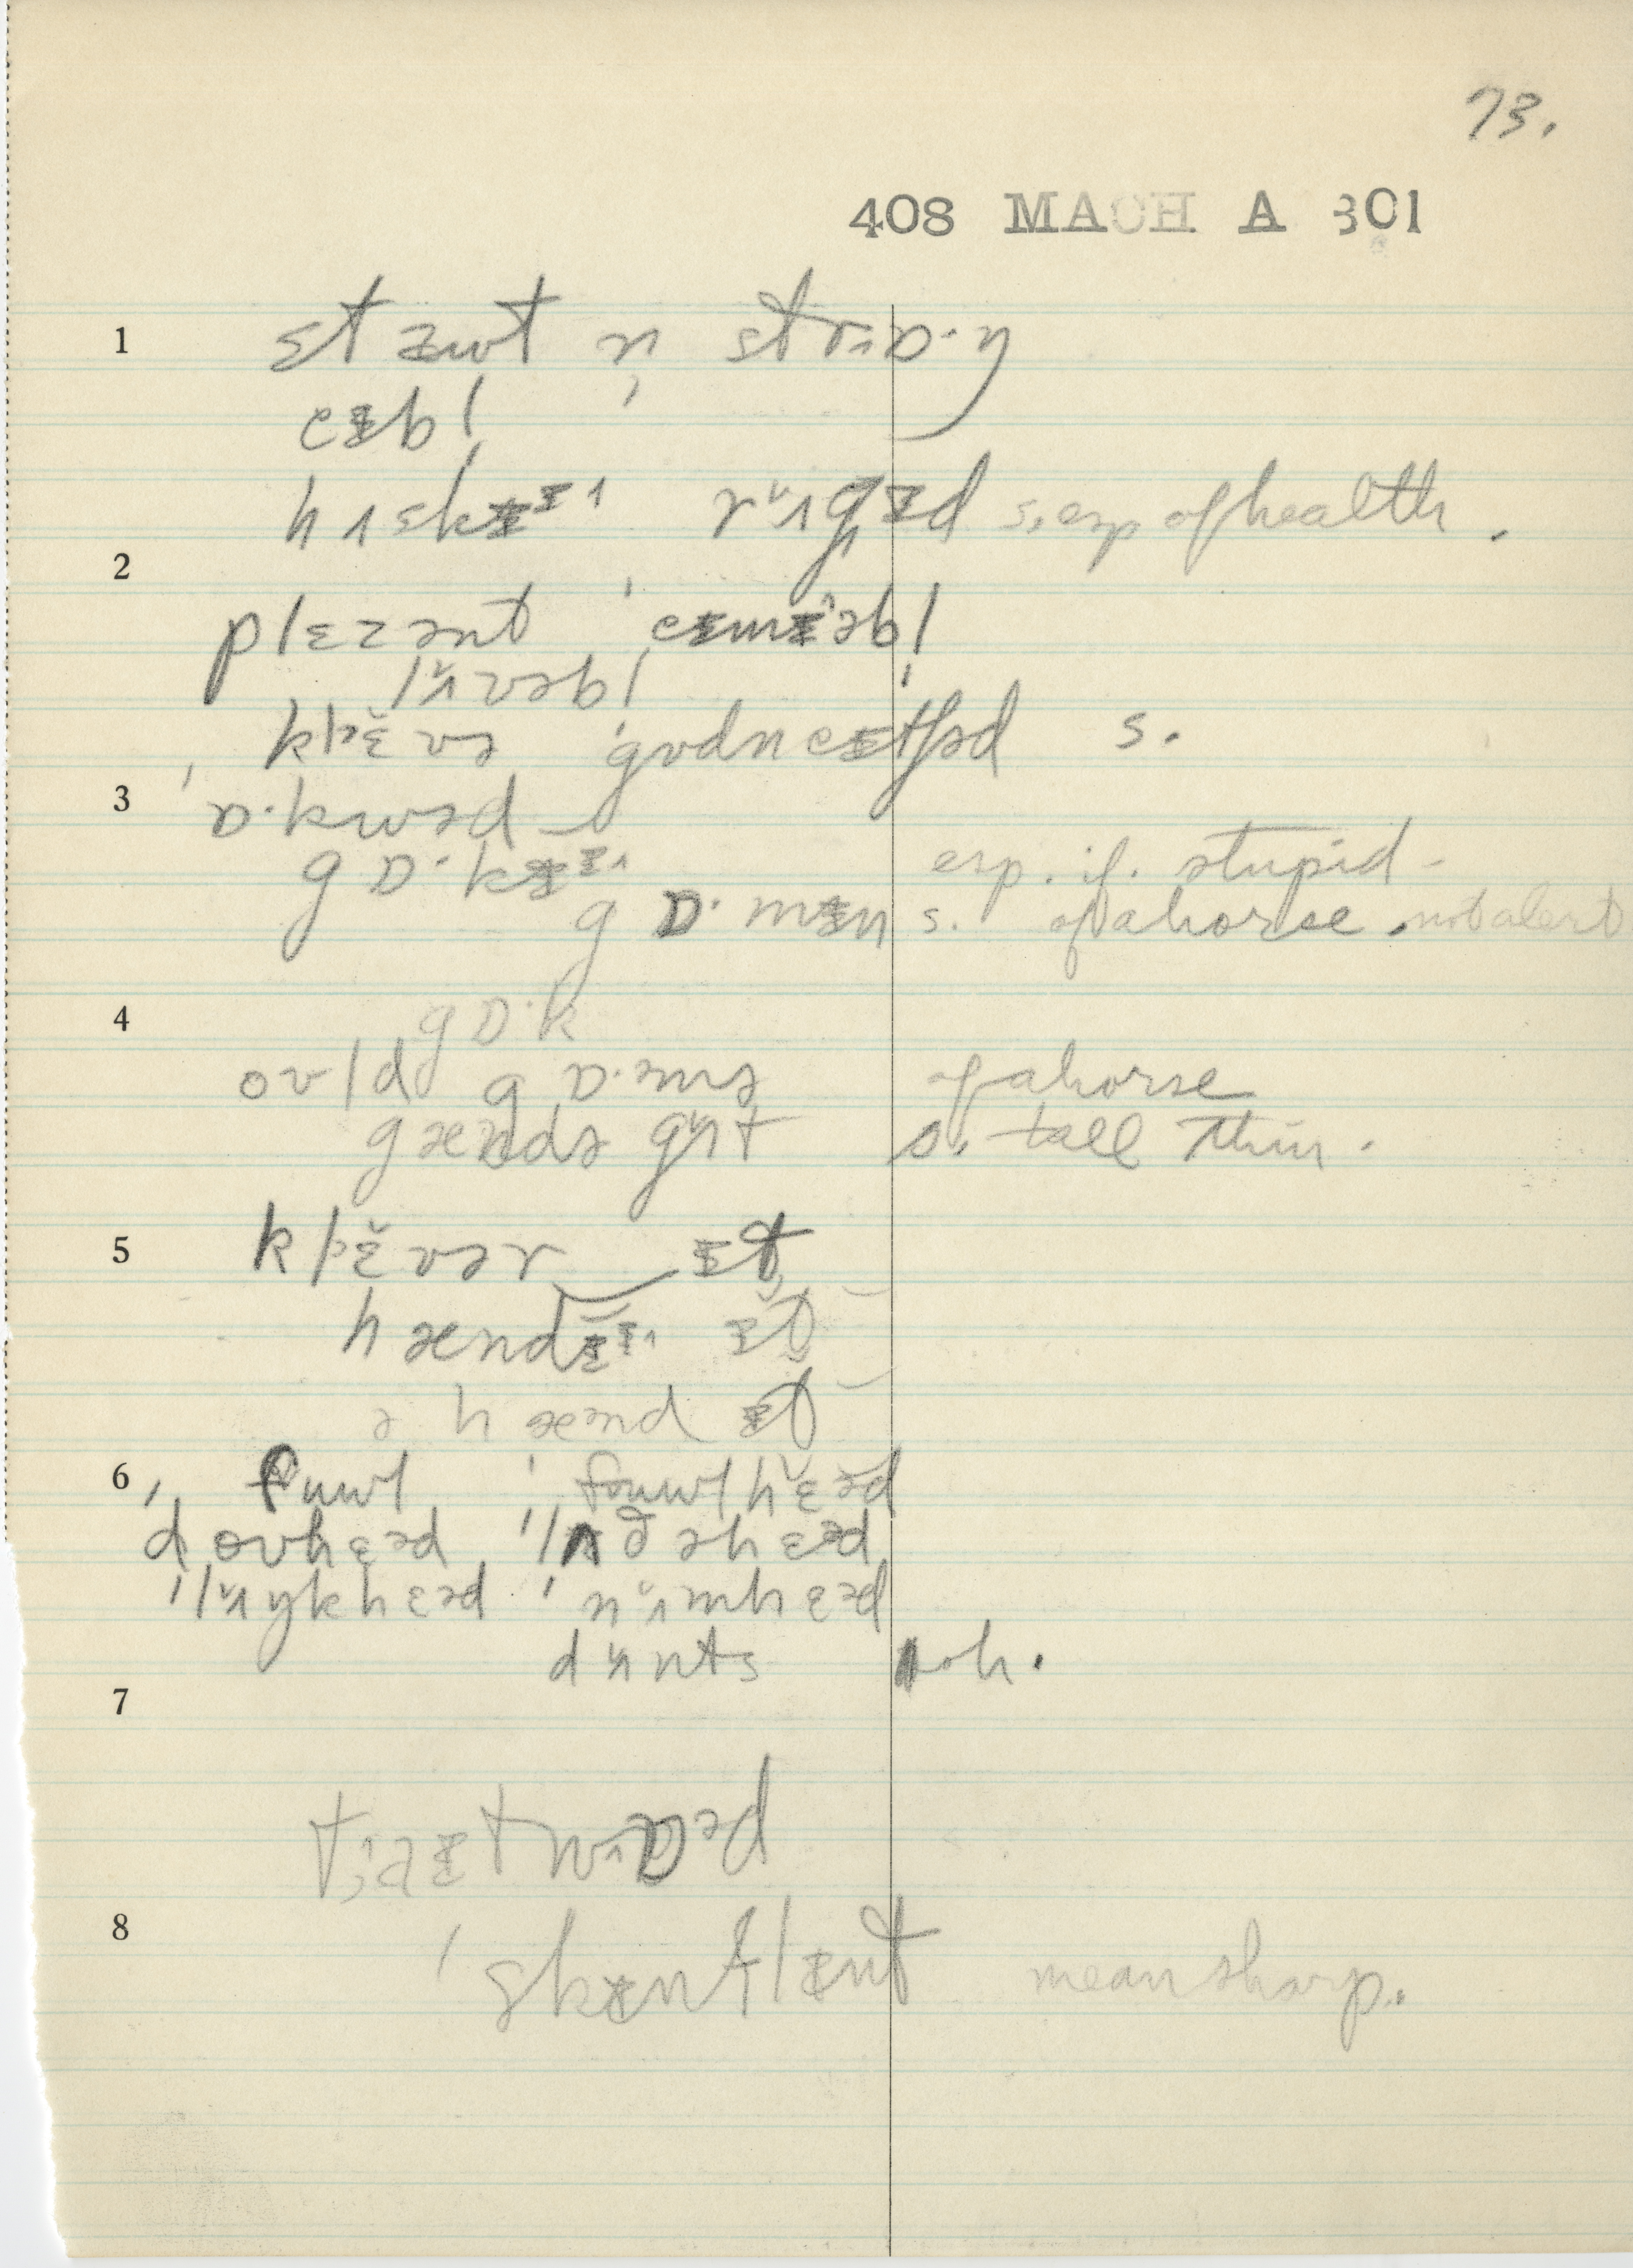 73.
408 MACH A 301
1 stæwt n̩ strɒ·ŋ
eɪbl̩
hʌskɪi rʌgɪd s. esp of health.
2
plɛzənt ˈeɪmɪəbl̩
lʌvəbl̩
klɛvə ˈgʊdneɪtʃəd s.
3 ˈɒ·kwəd
gɒ·kɪi esp. if. stupid-
gɒ·mɪn s. of a horse. not alert
4 gɒ·k
oʊld gɒ·mə of a horse
gændə gʌt s. tall thin.
5 klɛvər ɪt
hændɪi ɪt
ə hænd ɪt
6 fuwl ˈfuwlhɛəd
ˈdoʊhɛəd ˈlæðəhɛəd
ˈlʌŋkhɛəd ˈnʌmhɛəd
dʌnts oh.
7
tɪətwɒəd
8 ˈskɪntflɪnt mean sharp.